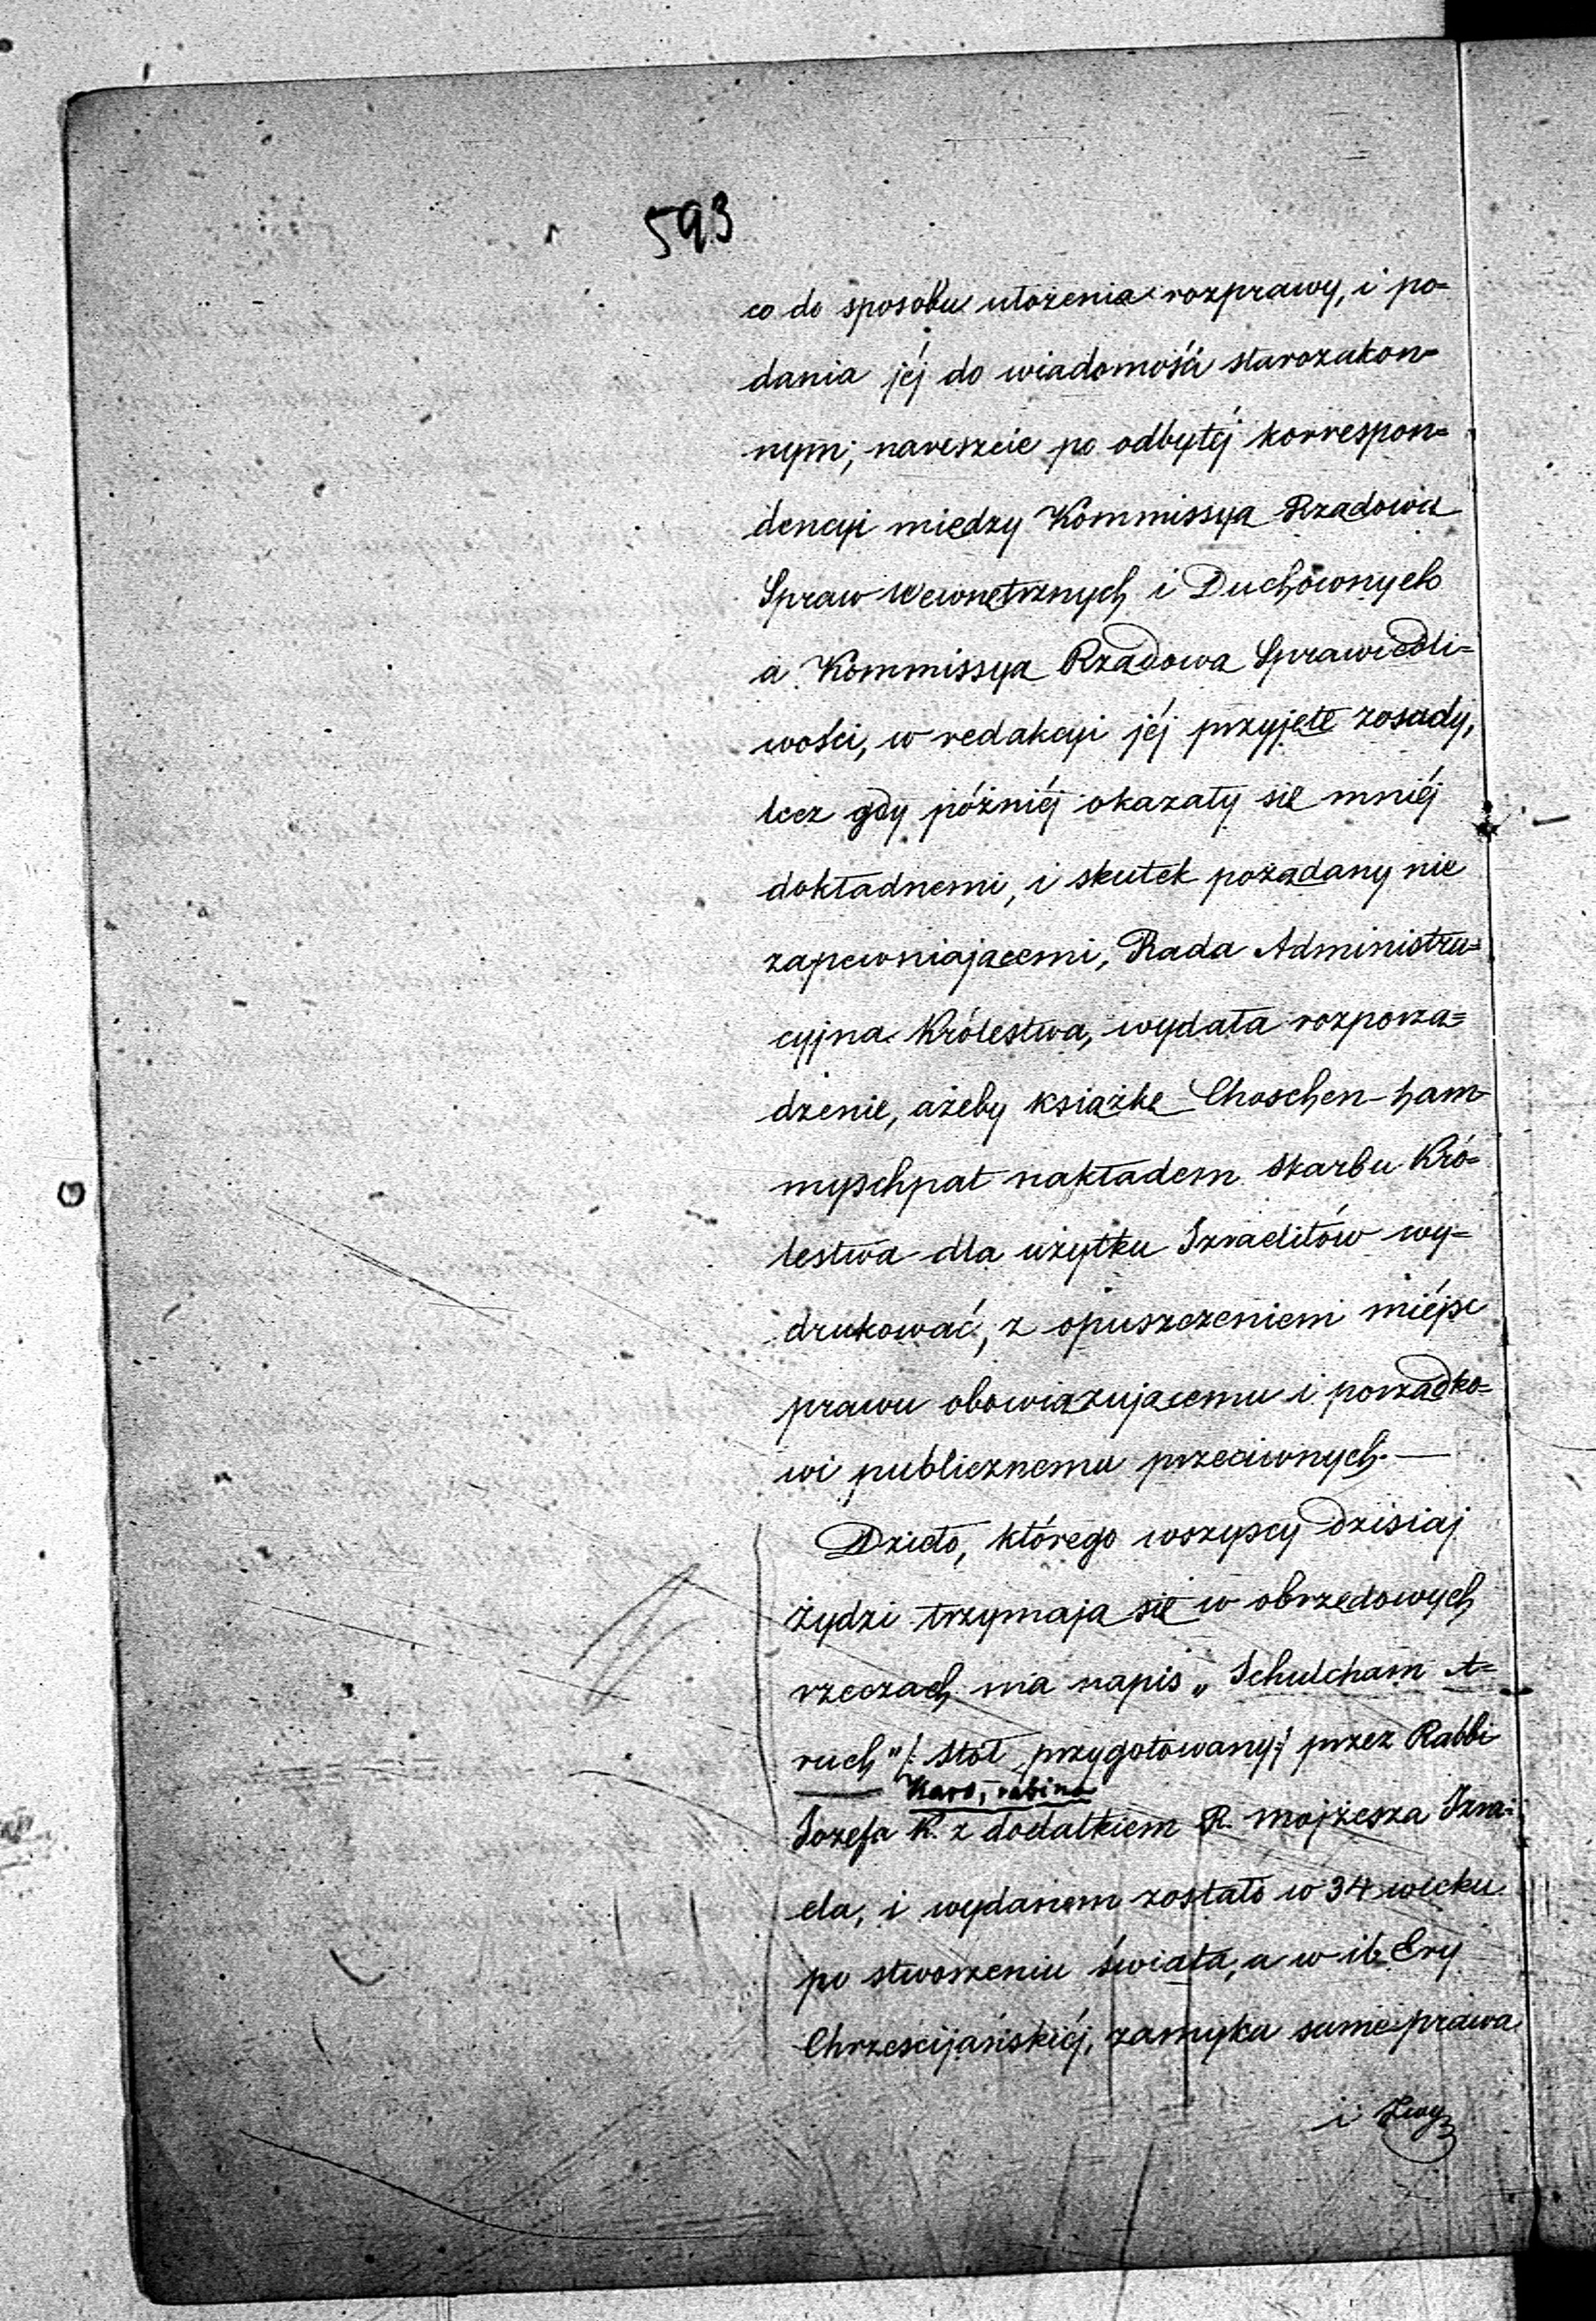 593
co do sposobu ułożenia rozprawy, i po=
dania jéj do wiadomości starozakon=
nym; nareszcie po odbytéj korrespon=
dencyi między Kommissyą Rządową
Spraw Wewnętrznych i Duchownych
a Kommissyą Rządową Sprawiedli=
wości, w redakcyi jéj przyjęte zosady,
lecz gdy późniéj okazały się mniéj
dokładnemi, i skutek pożądany nie
zapewniającemi, Rada Administra=
cyjna Królestwa, wydała rozporzą=
dzenie, ażeby książkę Choschen-ham-
myschpat nakładem Skarbu Kró=
lestwa dla użytku Izraelitów wy=
drukować, z opuszczeniem miéjsc
prawu obowiązującemu i porządko=
wi publicznemu przeciwnych. —
Dzieło, którego wszyscy dzisiaj
żydzi trzymają się w obrzędowych
rzeczach ma napis „Schulcham A=
ruch" /: Stół przygotowany :/ przez Rabbi
Karo, rabina
Jozefa K. z dodatkiem R. Mojżesza Izra=
ela, i wydanem zostało w 34 wieku
po stworzeniu świata, a w 16 Ery
Chrześcijańskiéj, zamyka same prawa
i